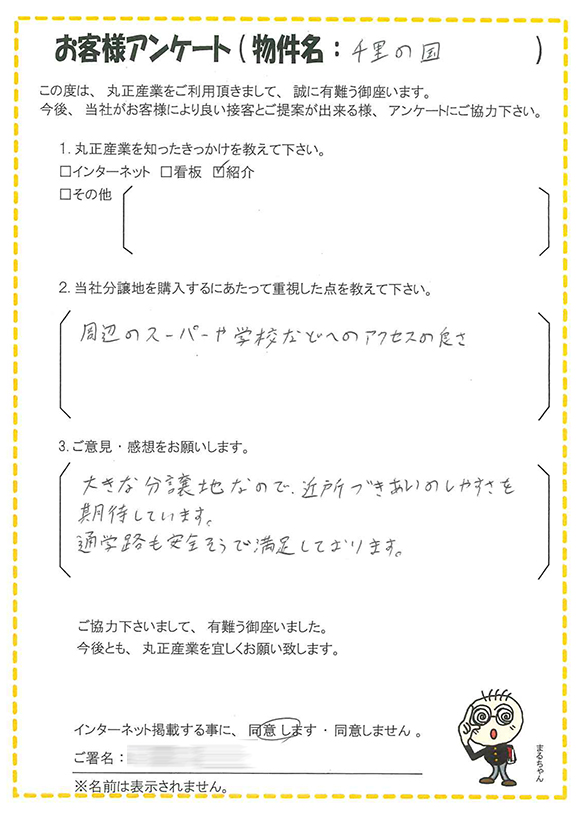 お客様アンケート(物件名：千里の国)
この度は、丸正産業をご利用頂きまして、誠に有難う御座います。
今後、当社がお客様により良い接客とご提案が出来る様、アンケートにご協力下さい。
1.丸正産業を知ったきっかけを教えて下さい。
□インターネット □看板 ☑紹介
□その他
2.当社分譲地を購入するにあたって重視した点を教えて下さい。
周辺のスーパーや学校などへのアクセスの良さ
3.ご意見・感想をお願いします。
大きな分譲地なので、近所づきあいのしやすさを
期待しています。
通学路も安全そうで満足しております。
ご協力下さいまして、有難う御座いました。
今後とも、丸正産業を宜しくお願い致します。
インターネット掲載する事に、同意します・同意しません。
ご署名：
※名前は表示されません。
まるちゃん